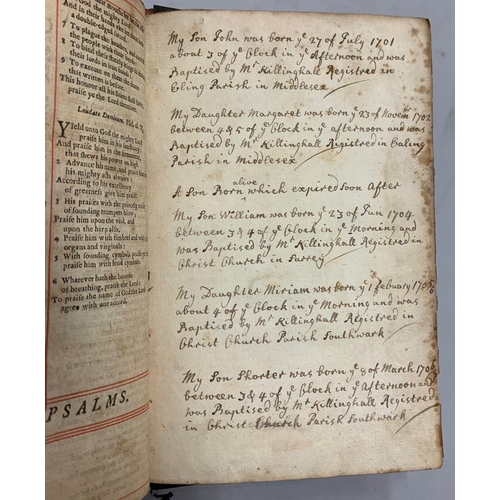 the mighty Lord
a double-edged
7 To plague the heathen, and
the people with
8 To bind
9 To execute on them the doom
that written is before:
This honour all his Saints shall have,
praise ye the Lord therefore.
Laudate Dominum. Psal. cl.
Yield unto God the mighty Lord
praise in his sanctuary,
And praise him in the firmament
that shews his power on high.
2 Advance his name, and praise him in
his mighty acts always;
According to his excellency
of greatness give him praise.
3 His praises with the princely noise
of sounding trumpets blow;
Praise him upon the viol, and
upon the harp also.
4 Praise him with timbrel and with
organs and virginals:
5 With sounding cymbals praise
praise him with loud cymbals.
6 Whatever hath the benefit
of breathing, praise the Lord:
To praise the name of God the Lord
agree with one accord.
PSALMS.
My Son John was born yᵉ 27 of July 1701
about 3 of yᵉ Clock in yᵉ Afternoon and was
Baptised by Mʳ Killinghall Registred in
Eling Parish in Middlesex
My Daughter Margaret was born yᵉ 23 of Novemʳ 1702
between 4 & 5 of yᵉ Clock in yᵉ afternoon and was
Baptised by Mʳ Killinghall Registred in Ealing
Parish in Middlesex
A Son Born alive which expired soon After
My Son William was born yᵉ 23 of Jun 1704
between 3 & 4 of yᵉ Clock in yᵉ Morning and
was Baptised by Mʳ Killinghall Registred in
Christ Church in Surrey
My Daughter Miriam was born yᵉ 1 Febuary
about 4 of yᵉ Clock in yᵉ Morning and was
Baptised by Mʳ Killinghall Registred in
Christ Church Parish Southwark
My Son Shorter was born yᵉ 8 of March
between 3 & 4 of yᵉ Clock in yᵉ Afternoon and
was Baptised by Mʳ Killinghall Registred
in Christ Church Parish Southwark